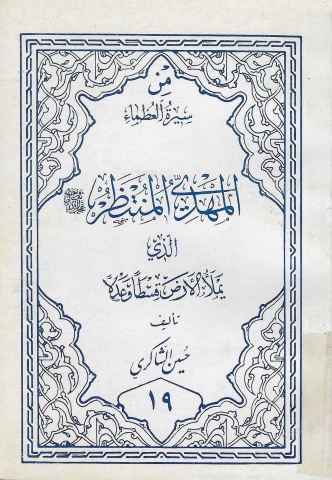 من
سيرة العظماء
المهدي المنتظر
الذي
يملأ الأرض قسطاً وعدلاً
تأليف
حسين الشاكري
١٩